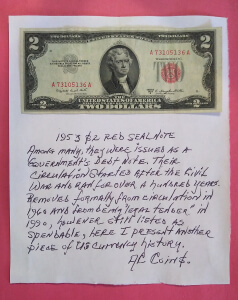 2
2
A 73105136 A
A 73105136 A
THE UNITED STATES OF AMERICA
TWO DOLLARS
2
2
1953 $2 RED SEAL NOTE
AMONG MANY, THEY WERE ISSUED AS A
GOVERNMENT'S DEBT NOTE. THEIR
CIRCULATION STARTED AFTER THE CIVIL
WAR AND RAN FOR OVER A HUNDRED YEARS.
REMOVED FORMALLY FROM CIRCULATION IN
1960 AND FROM BEING "LEGAL TENDER" IN
1990, HOWEVER STILL LISTED AS
SPENDABLE, HERE I PRESENT ANOTHER
PIECE OF US CURRENCY HISTORY.
AC COINS.